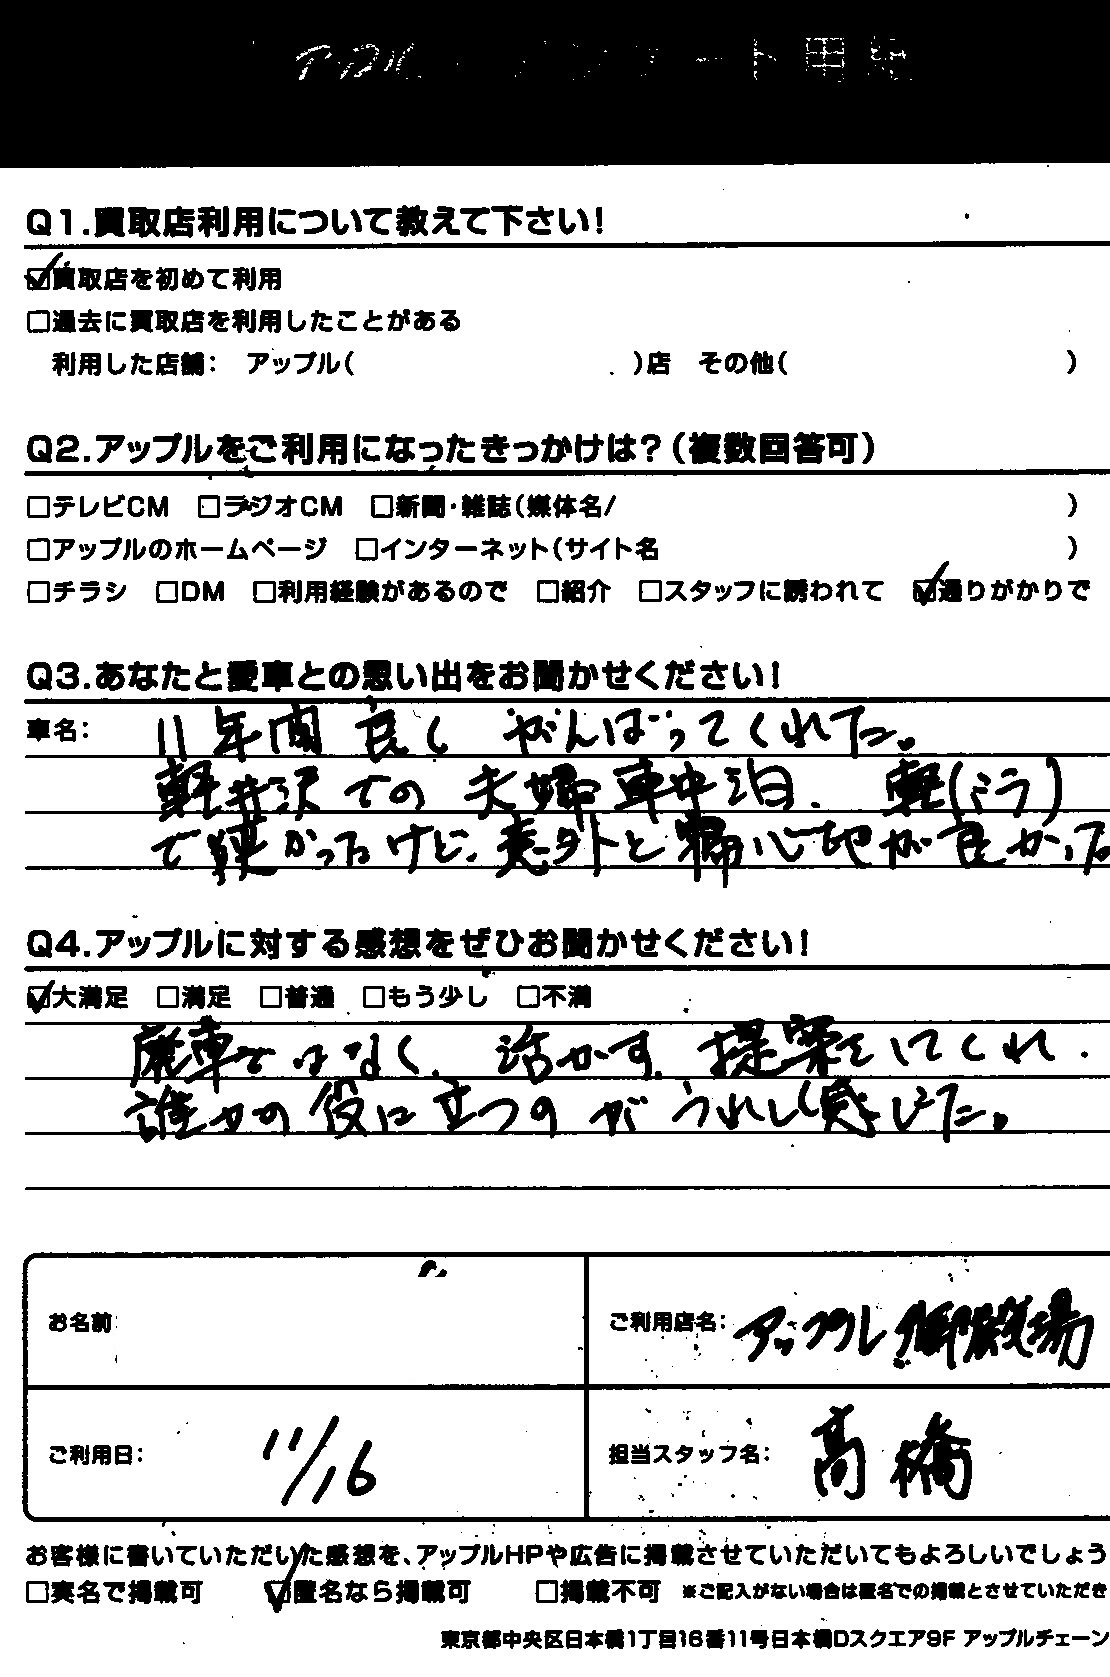 アップル アンケート用紙
Q1.買取店利用について教えて下さい!
☑買取店を初めて利用
□過去に買取店を利用したことがある
利用した店舗: アップル( )店 その他( )
Q2.アップルをご利用になったきっかけは?(複数回答可)
□テレビCM □ラジオCM □新聞・雑誌(媒体名/ )
□アップルのホームページ □インターネット(サイト名 )
□チラシ □DM □利用経験があるので □紹介 □スタッフに誘われて ☑通りがかりで
Q3.あなたと愛車との思い出をお聞かせください!
車名: 11年間良く がんばってくれた。
軽井沢での夫婦車中泊、軽(ミラ)
で狭かったけど、意外と寝心地が良かった
Q4.アップルに対する感想をぜひお聞かせください!
☑大満足 □満足 □普通 □もう少し □不満
廃車ではなく、活かす提案をしてくれ、
誰かの役に立つのがうれしく感じた。
お名前
ご利用店名: アップル御殿場
ご利用日: 11/16
担当スタッフ名: 高橋
お客様に書いていただいた感想を、アップルHPや広告に掲載させていただいてもよろしいでしょう
□実名で掲載可 ☑匿名なら掲載可 □掲載不可 ※ご記入がない場合は匿名での掲載とさせていただき
東京都中央区日本橋1丁目16番11号日本橋Dスクエア9F アップルチェーン